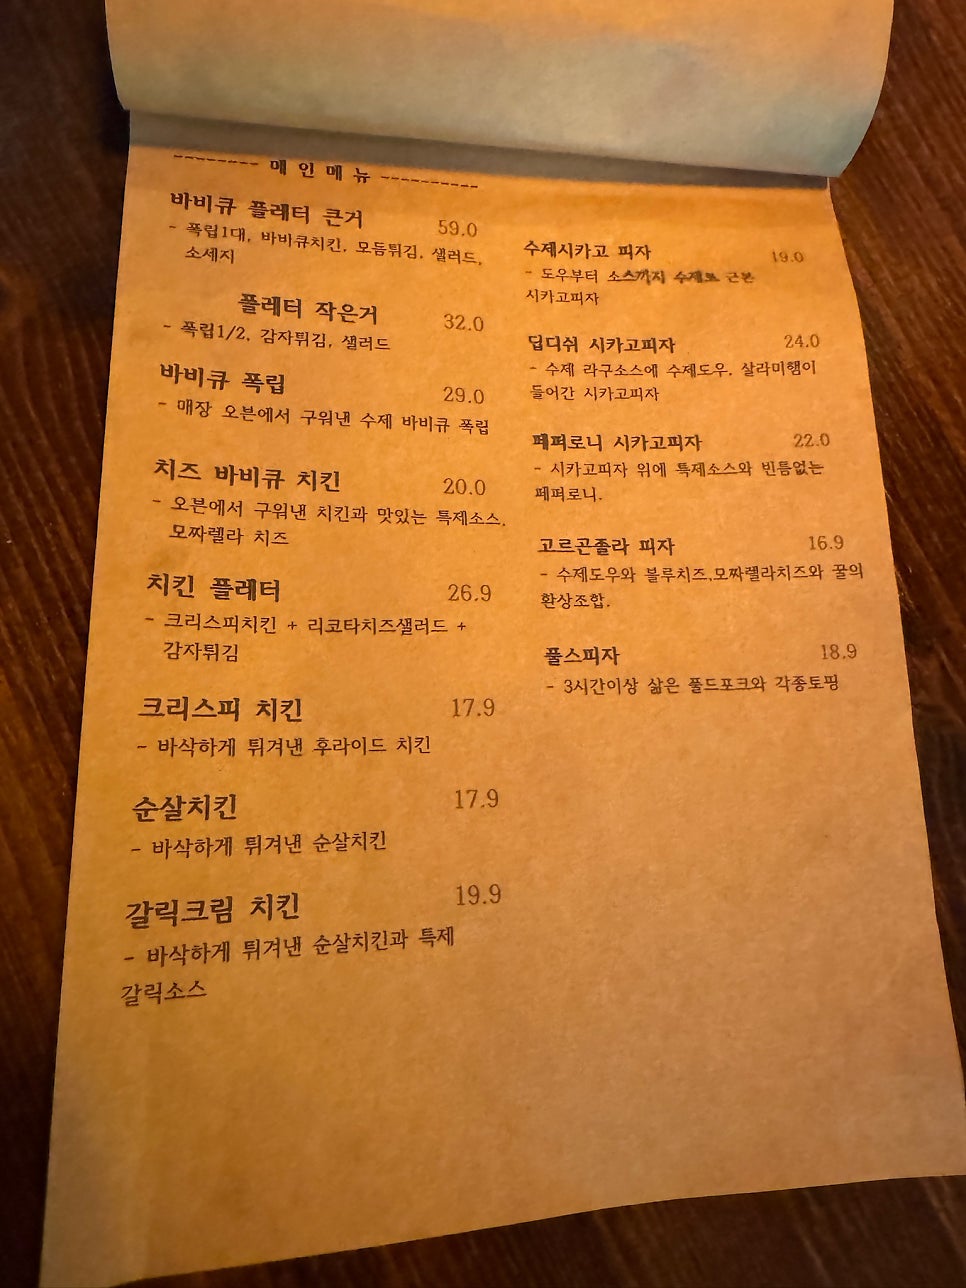 -------- 메 인 메 뉴 ----------
바비큐 플레터 큰거 59.0
- 폭립1대, 바비큐치킨, 모듬튀김, 샐러드,
소세지
플레터 작은거 32.0
- 폭립1/2, 감자튀김, 샐러드
바비큐 폭립 29.0
- 매장 오븐에서 구워낸 수제 바비큐 폭립
치즈 바비큐 치킨 20.0
- 오븐에서 구워낸 치킨과 맛있는 특제소스,
모짜렐라 치즈
치킨 플레터 26.9
- 크리스피치킨 + 리코타치즈샐러드 +
감자튀김
크리스피 치킨 17.9
- 바삭하게 튀겨낸 후라이드 치킨
순살치킨 17.9
- 바삭하게 튀겨낸 순살치킨
갈릭크림 치킨 19.9
- 바삭하게 튀겨낸 순살치킨과 특제
갈릭소스
수제시카고 피자 19.0
- 도우부터 소스까지 수제로 근본
시카고피자
딥디쉬 시카고피자 24.0
- 수제 라구소스에 수제도우, 살라미햄이
들어간 시카고피자
페퍼로니 시카고피자 22.0
- 시카고피자 위에 특제소스와 빈틈없는
페퍼로니.
고르곤졸라 피자 16.9
- 수제도우와 블루치즈,모짜렐라치즈와 꿀의
환상조합.
풀스피자 18.9
- 3시간이상 삶은 풀드포크와 각종토핑